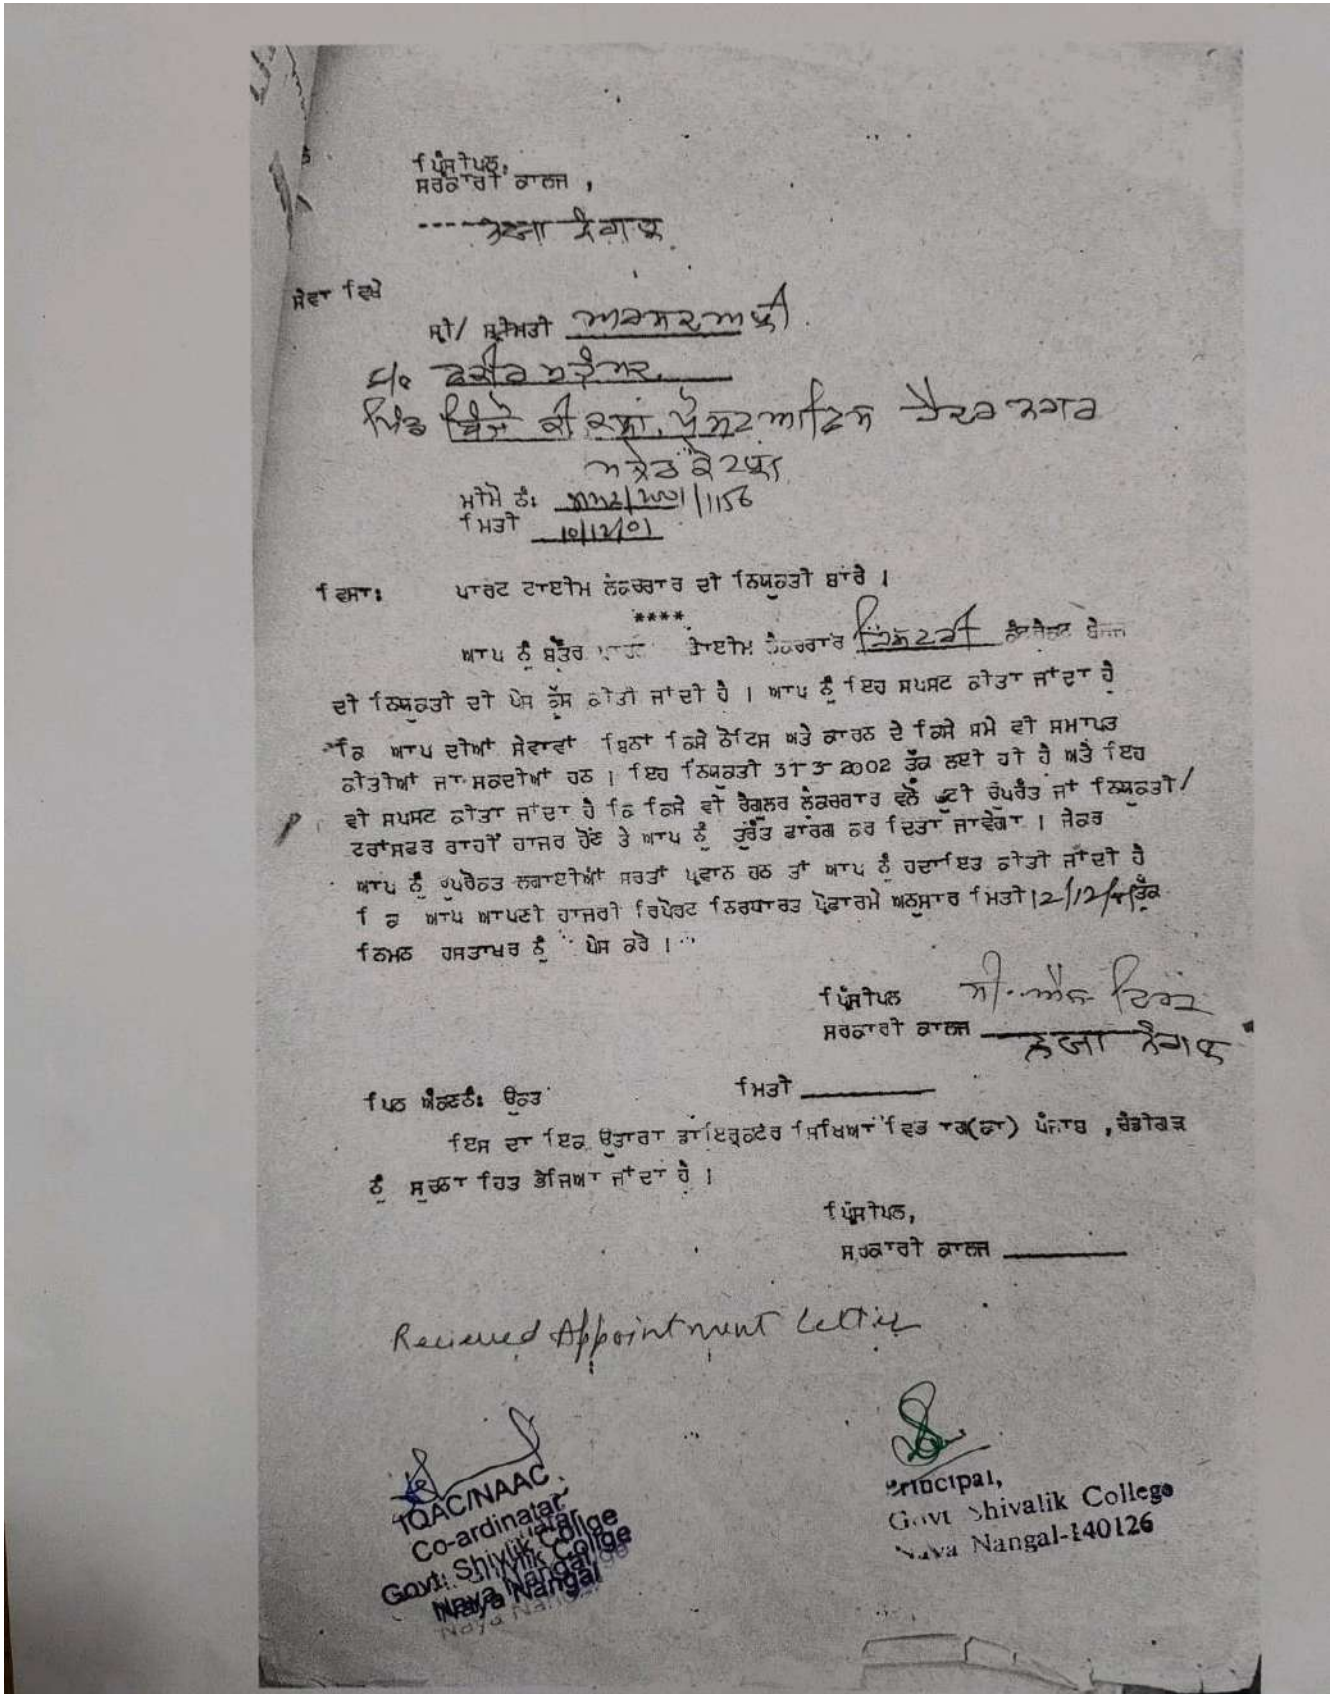 ਪ੍ਰਿੰਸੀਪਲ,
ਸਰਕਾਰੀ ਕਾਲਜ ,
ਨਯਾ ਨੰਗਲ
ਸੇਵਾ ਵਿਖੇ
ਸ੍ਰੀ/ ਸ੍ਰੀਮਤੀ
ਪਿੰਡ ਪੋਸਟ ਆਫਿਸ ਹੈਦਰ ਨਗਰ
ਮੀਮੋ ਨੰ: /2001/1156
ਮਿਤੀ 10/12/01
ਵਿਸਾ: ਪਾਰਟ ਟਾਈਮ ਲੈਕਚਰਾਰ ਦੀ ਨਿਯੁਕਤੀ ਬਾਰੇ ।
****
ਆਪ ਨੂੰ ਬਤੌਰ ਪਾਰਟ ਟਾਈਮ ਲੈਕਚਰਾਰ ਹਿਸਟਰੀ
ਦੀ ਨਿਯੁਕਤੀ ਦੀ ਪੇਸ਼ ਕੀਤੀ ਜਾਂਦੀ ਹੈ । ਆਪ ਨੂੰ ਇਹ ਸਪਸਟ ਕੀਤਾ ਜਾਂਦਾ ਹੈ
ਕਿ ਆਪ ਦੀਆਂ ਸੇਵਾਵਾਂ ਬਿਨਾਂ ਕਿਸੇ ਨੋਟਿਸ ਅਤੇ ਕਾਰਨ ਦੇ ਕਿਸੇ ਸਮੇਂ ਵੀ ਸਮਾਪਤ
ਕੀਤੀਆਂ ਜਾ ਸਕਦੀਆਂ ਹਨ । ਇਹ ਨਿਯੁਕਤੀ 31-3-2002 ਤੱਕ ਲਈ ਹੀ ਹੈ ਅਤੇ ਇਹ
ਵੀ ਸਪਸਟ ਕੀਤਾ ਜਾਂਦਾ ਹੈ ਕਿ ਕਿਸੇ ਵੀ ਰੈਗੂਲਰ ਲੈਕਚਰਾਰ ਵਲੋਂ ਛੁਟੀ ਉਪਰੰਤ ਜਾਂ ਨਿਯੁਕਤੀ/
ਟਰਾਂਸਫਰ ਰਾਹੀਂ ਹਾਜਰ ਹੋਣ ਤੇ ਆਪ ਨੂੰ ਤੁਰੰਤ ਫਾਰਗ ਕਰ ਦਿਤਾ ਜਾਵੇਗਾ । ਜੇਕਰ
ਆਪ ਨੂੰ ਉਪਰੋਕਤ ਲਗਾਈਆਂ ਸਰਤਾਂ ਪ੍ਰਵਾਨ ਹਨ ਤਾਂ ਆਪ ਨੂੰ ਹਦਾਇਤ ਕੀਤੀ ਜਾਂਦੀ ਹੈ
ਕਿ ਆਪ ਆਪਣੀ ਹਾਜਰੀ ਰਿਪੋਰਟ ਨਿਰਧਾਰਤ ਪ੍ਰੋਫਾਰਮੇ ਅਨੁਸਾਰ ਮਿਤੀ 12/12/01 ਤੱਕ
ਨਿਮਨ ਹਸਤਾਖਰ ਨੂੰ ਪੇਸ ਕਰੋ ।
ਪ੍ਰਿੰਸੀਪਲ
ਸਰਕਾਰੀ ਕਾਲਜ ਨਯਾ ਨੰਗਲ
ਪਿਠ ਅੰਕਣਨੰ: ਉਕਤ ਮਿਤੀ
ਇਸ ਦਾ ਇਕ ਉਤਾਰਾ ਡਾਇਰੈਕਟਰ ਸਿਖਿਆ ਵਿਭਾਗ(ਕਾ) ਪੰਜਾਬ ,ਚੰਡੀਗੜ
ਨੂੰ ਸੂਚਨਾ ਹਿਤ ਭੇਜਿਆ ਜਾਂਦਾ ਹੈ ।
ਪ੍ਰਿੰਸੀਪਲ,
ਸਰਕਾਰੀ ਕਾਲਜ
Recieved Appointment Letter
IQAC/NAAC
Co-ardinatar
Govt. Shivlik Collge
Naya Nangal
Principal,
Govt Shivalik College
Naya Nangal-140126